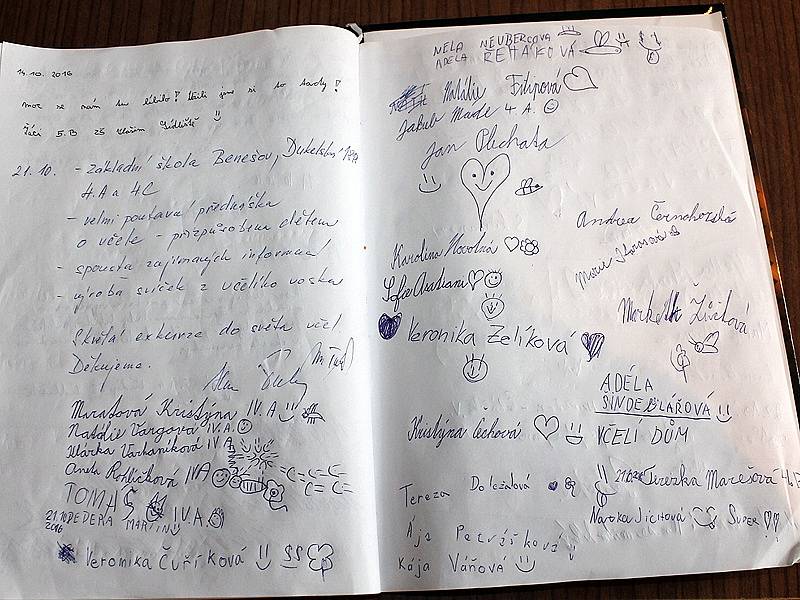 14.10. 2016
moc se nám tu líbilo! Užili jsme si to !
Žáci 5.B ZŠ Sídliště
21.10. - základní škola Benešov, Dukelská
4.A a 4C
- velmi poutavá přednáška
o včele - přizpůsobena dětem
- spousta zajímavých informací
- výroba svíček z včelího vosku
Skvělá exkurze do světa včel.
Děkujeme.
Maratová Kristýna IV.A
Natálie Vargová IV.A.
Klárka IV A
Aneta Rohlíčková IV A
TOMAŠ IV.A.
21.10 DEDERA MARTIN
2016
Veronika Čuříková
NELA NEUBERGOVA
ADELA ŘEHÁKOVÁ
Natálie Filipová
Jakub 4 A.
Jan Plechata
Andrea Černohorská
Karolína Novotná
Marie
Sofie
Markéta
Veronika Zelíková
ADÉLA
ŠINDELÁŘOVÁ
Kristýna Čechová
VČELÍ DŮM
Terezka Marešová
Tereza Doležalová
Jíchová SUPER
Kája Petrásková
Kája Váňová